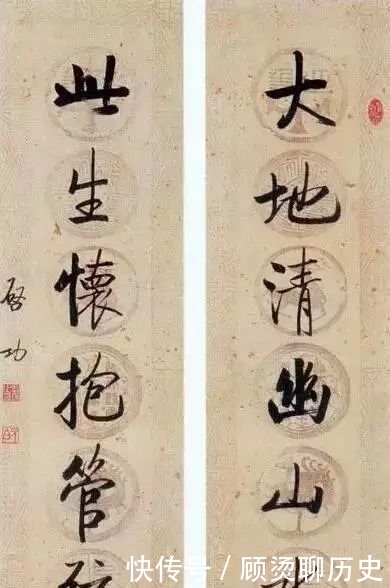 大地清幽山
此生懷抱管
啓功
快传号 / 顾烫聊历史